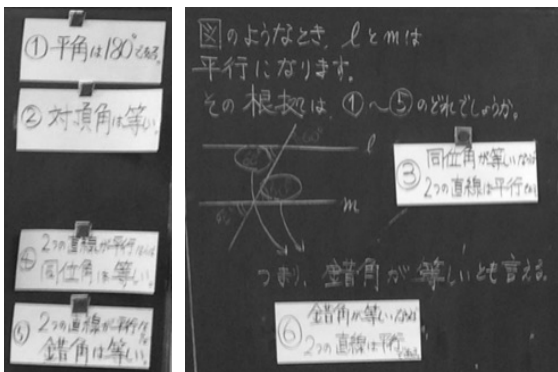 ①平角は180°である。
②対頂角は等しい。
2つの直線が平行ならば
同位角は等しい。
⑤2つの直線が平行なら
錯角は等しい。
図のようなとき、lとmは
平行になります。
その根拠は、①〜⑤のどれでしょうか。
l
m
③同位角が等しいならば
2つの直線は平行
つまり、錯角が等しいとも言える。
⑥錯角が等しいならば
2つの直線は平行